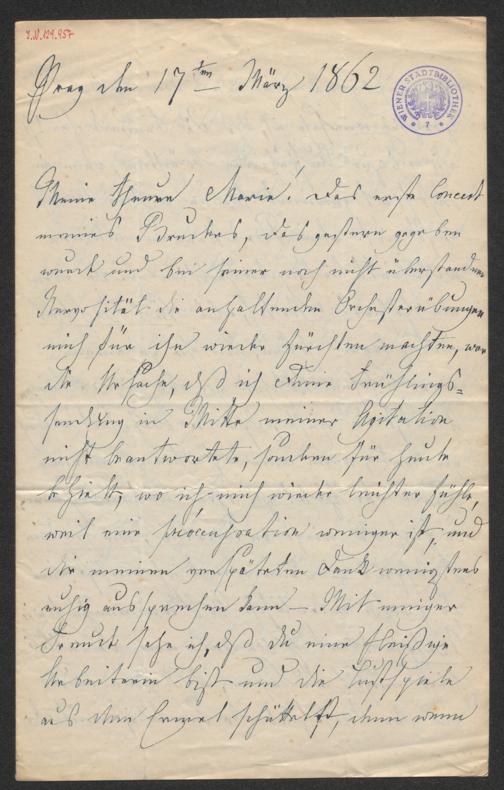 J.N. 129.957
Prag den 17ten März 1862
WIENER STADTBIBLIOTHEK
* 7 *
Meine theure Marie! Das erste Concert
meines Bruders, das gestern gegeben
wurde und bei seiner noch nicht überstandenen
Nervosität die anhaltenden Orchesterübungen
mich für ihn wieder fürchten machten, war
die Ursache, daß ich Deine Frühlings-
sendung in Mitte meiner Agitation
nicht beantwortete, sondern für heute
behielt, wo ich mich wieder leichter fühle,
weil eine präoccupation weniger ist, und
dir meinen verspäteten Dank wenigstens
ruhig aussprechen kann – Mit inniger
Freude sehe ich, daß du eine fleißige
Arbeiterin bist und die Lustspiele
aus dem Ermel schüttelst, denn wenn